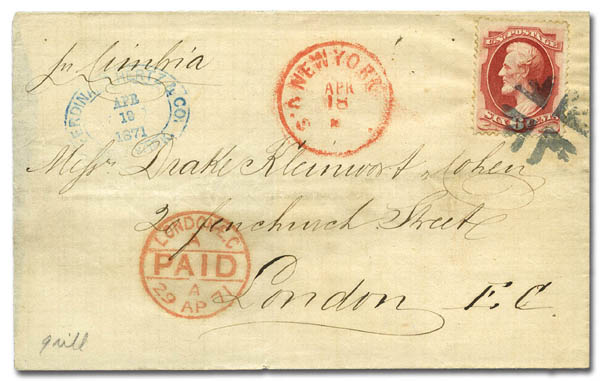 pr Cimbria
HERTZ & CO.
APR
19
1871
NEW YORK
APR
18
U.S. POSTAGE
SIX CENTS
Messrs Drake Kleinwort & Cohen
20 Fenchurch Street
London E.C.
LONDON E.C
A
PAID
A
29 AP 71
grill